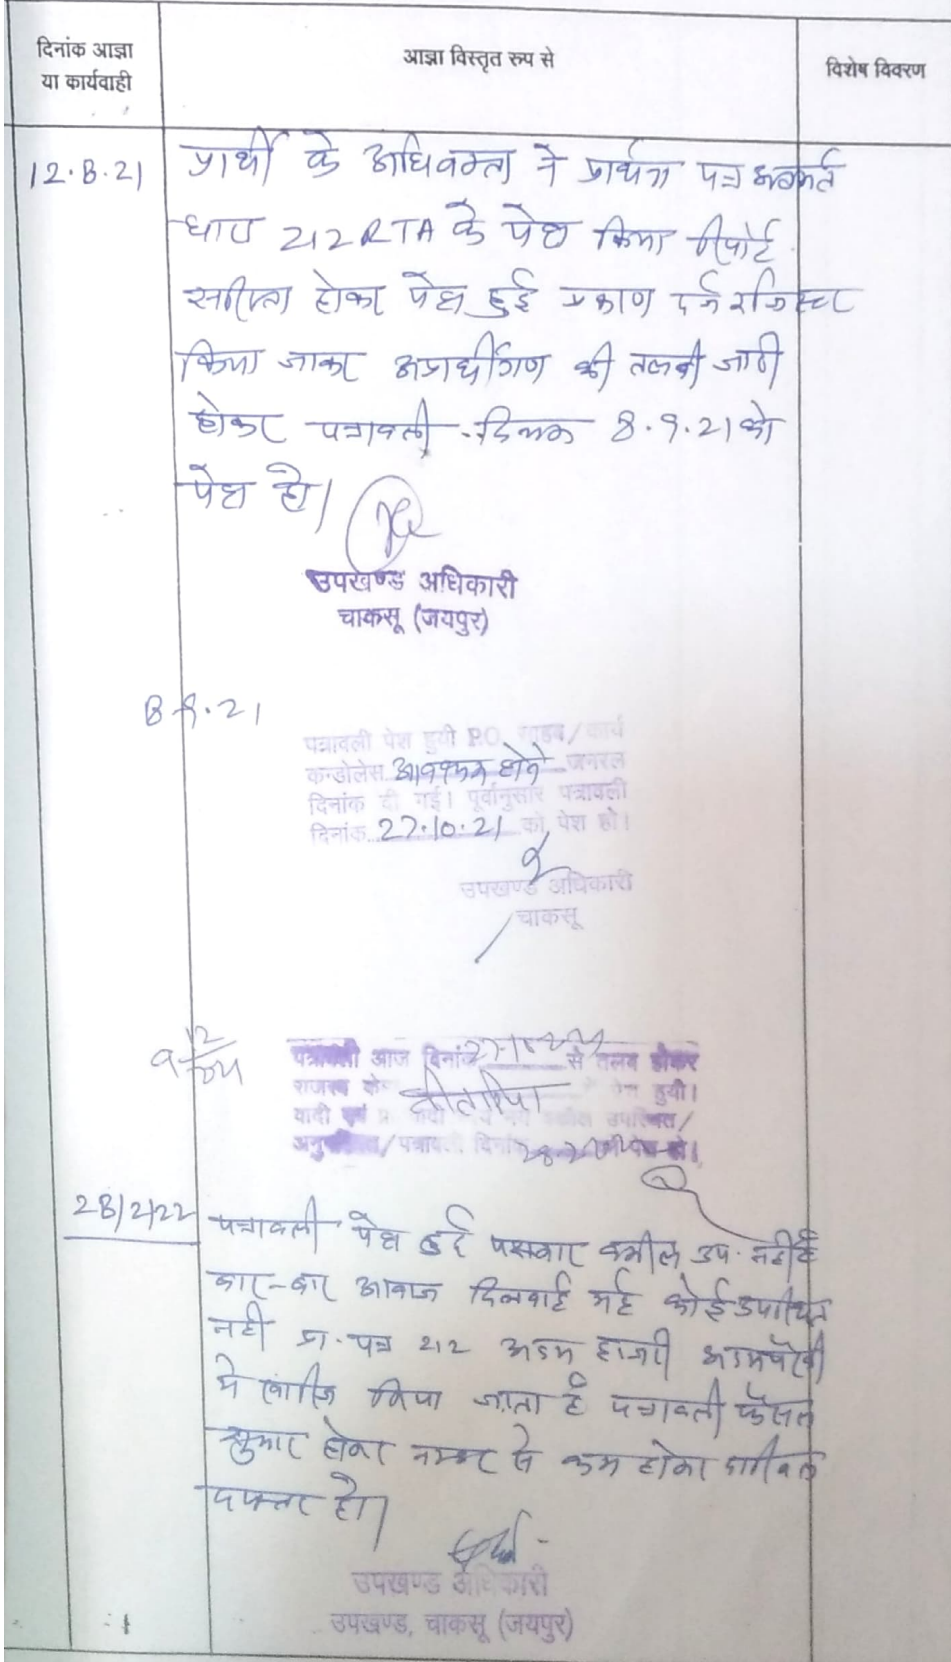 दिनांक आज्ञा
या कार्यवाही
आज्ञा विस्तृत रूप से
विशेष विवरण
12.8.21
प्रार्थी के अधिवक्ता ने प्रार्थना पत्र अन्तर्गत
धारा 212 RTA के पेश किया रिपोर्ट
सरिश्ता होकर पेश हुई प्रकरण दर्ज रजिस्टर
किया जाकर अप्रार्थीगण की तलबी जारी
होकर पत्रावली दिनांक 8.9.21 को
पेश हो।
उपखण्ड अधिकारी
चाकसू (जयपुर)
8.9.21
पत्रावली पेश हुयी P.O. साहब/कार्य
कन्डोलेस होने जनरल
दिनांक दी गई। पूर्वानुसार पत्रावली
दिनांक 27.10.21 को पेश हो।
उपखण्ड अधिकारी
चाकसू
पत्रावली आज दिनांक से तलब होकर
राजस्व हुयी।
वादी उपस्थित/
अनुपस्थित/पत्रावली दिनांक पेश हो।
28/2/22
पत्रावली पेश हुई पक्षकार वकील उप. नहीं है
बार-बार आवाज दिलवाई गई कोई उपस्थित
नहीं प्रा. पत्र 212 अदम हाजरी अदम पैरवी
में खारिज किया जाता है पत्रावली फैसल
शुमार होकर नम्बर से कम होकर दाखिल
दफ्तर हो।
उपखण्ड अधिकारी
उपखण्ड, चाकसू (जयपुर)